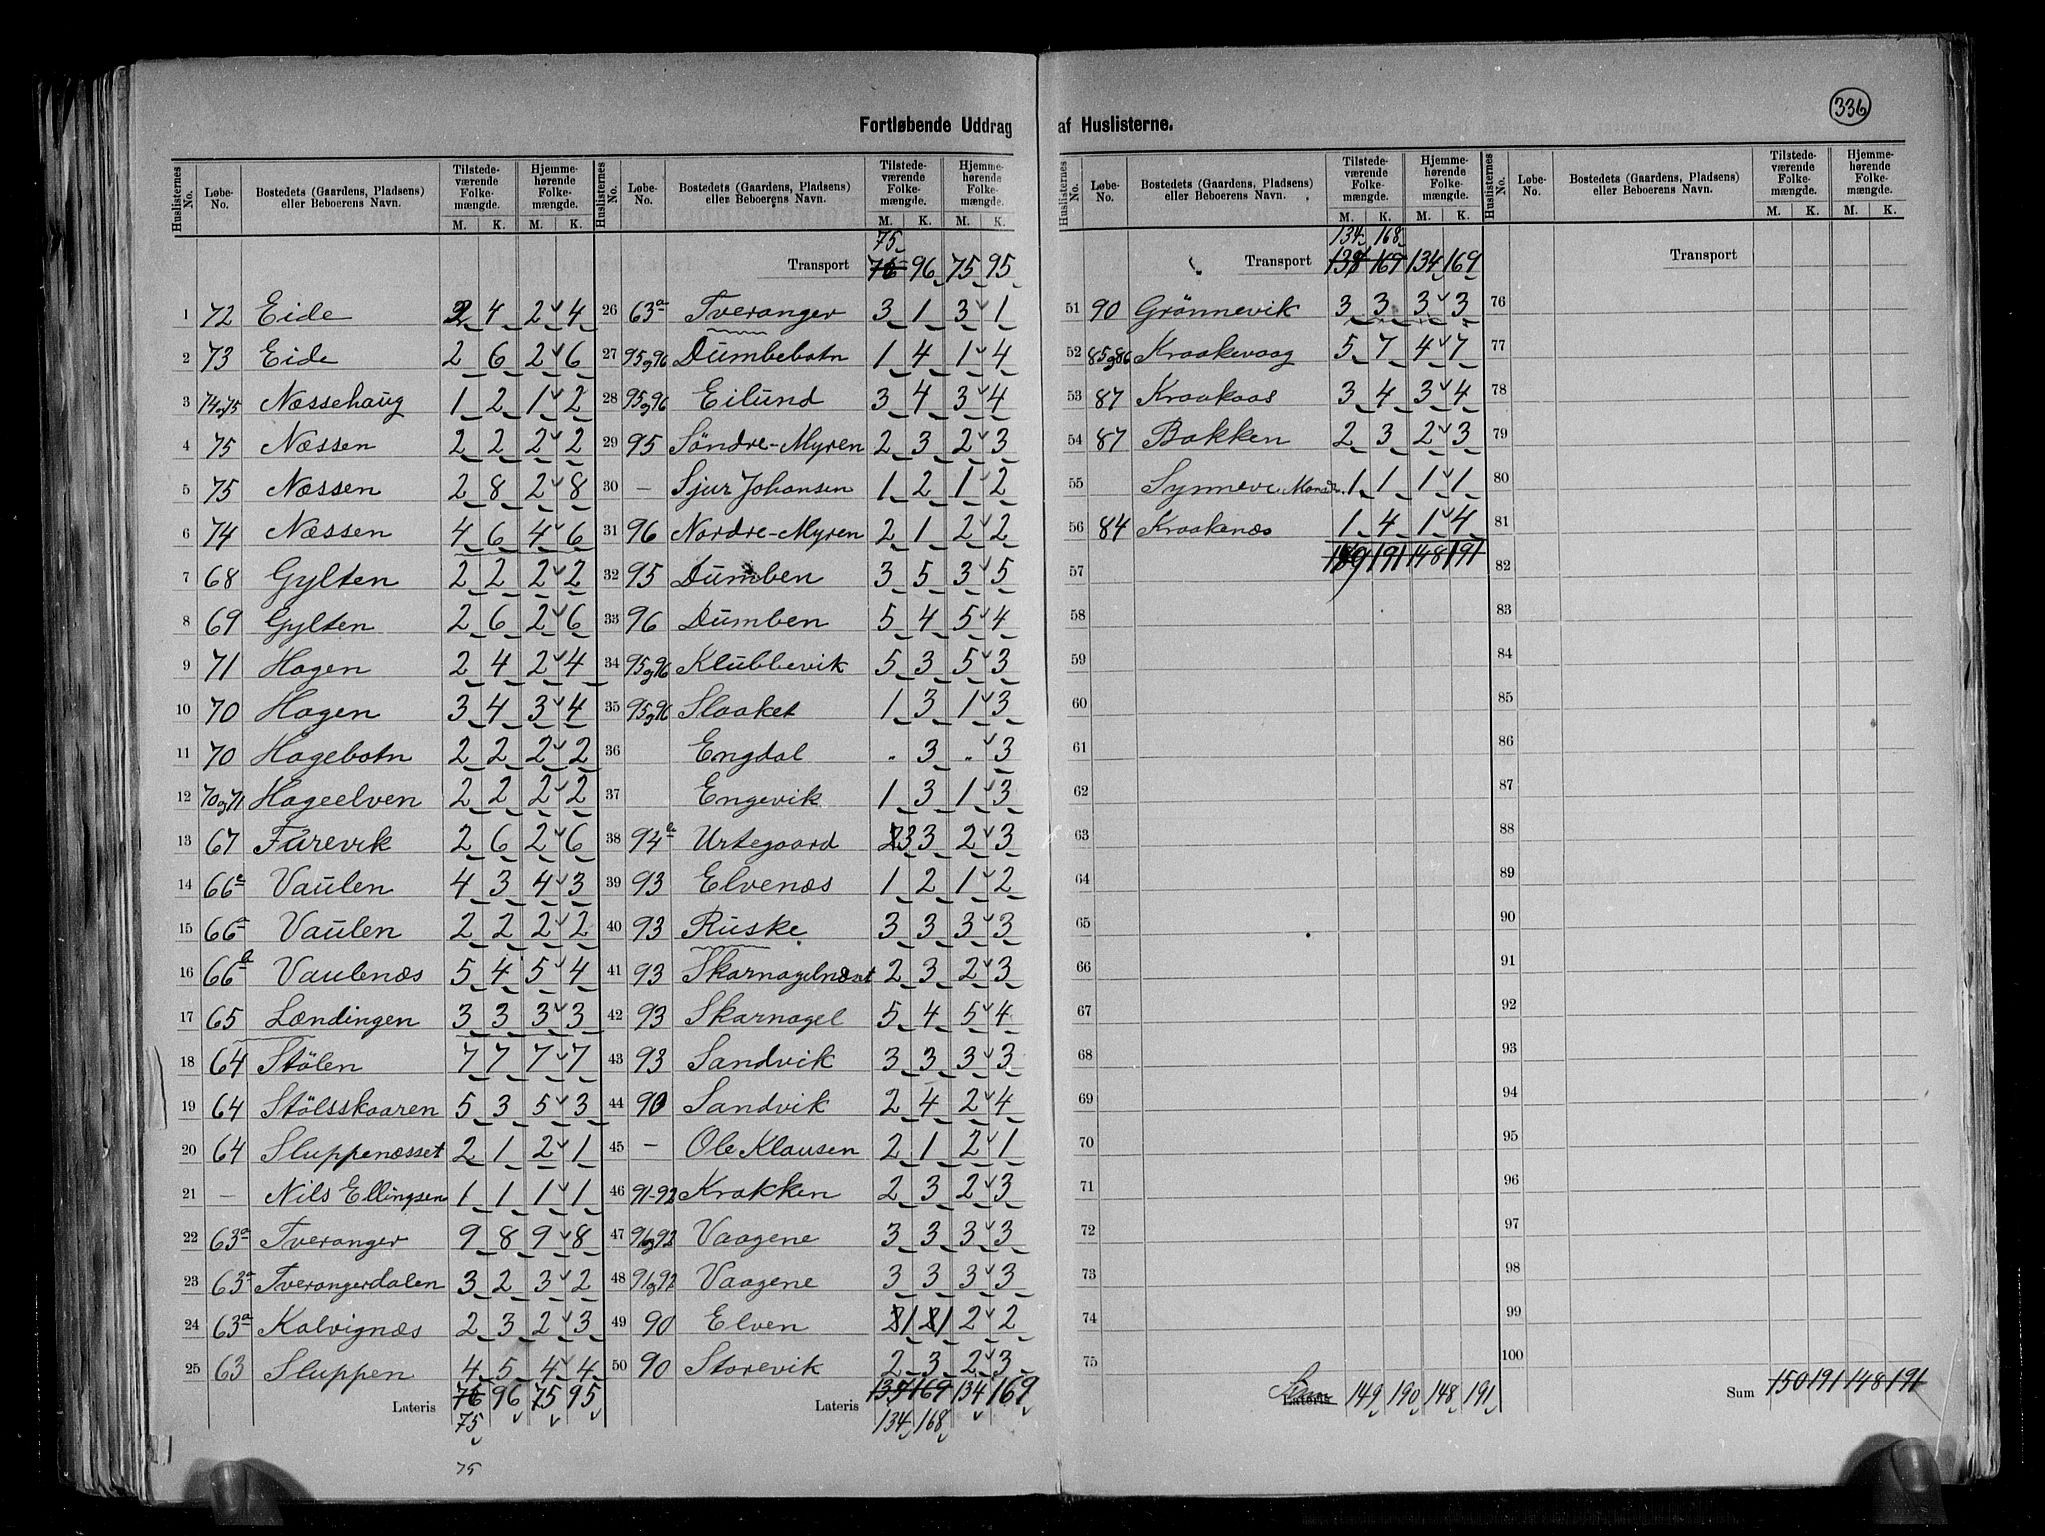 336
Fortløbende Uddrag af Huslisterne.
Huslisternes No. Løbe-No. Bostedets (Gaardens, Pladsens) eller Beboerens Navn. Tilstedeværende Folkemængde. M. K. Hjemmehørende Folkemængde. M. K.
1 72 Eide 2 4 2 4
2 73 Eide 2 6 2 6
3 74og75 Næssehaug 1 2 1 2
4 75 Næssen 2 2 2 2
5 75 Næssen 2 8 2 8
6 74 Næssen 4 6 4 6
7 68 Gylten 2 2 2 2
8 69 Gylten 2 6 2 6
9 71 Hagen 2 4 2 4
10 70 Hagen 3 4 3 4
11 70 Hagebotn 2 2 2 2
12 70og71 Hageelven 2 2 2 2
13 67 Furevik 2 6 2 6
14 66 Vaulen 4 3 4 3
15 66 Vaulen 2 2 2 2
16 66 Vaulenæs 5 4 5 4
17 65 Lændingen 3 3 3 3
18 64 Stölen 7 7 7 7
19 64 Stölsskaaren 5 3 5 3
20 64 Sluppenæsset 2 1 2 1
21 — Nils Ellingsen 1 1 1 1
22 63a Tveranger 9 8 9 8
23 63a Tverangerdalen 3 2 3 2
24 63a Kalvignæs 2 3 2 3
25 63 Sluppen 4 5 4 4
Lateris 76 96 75 95
75
75
Huslisternes No. Løbe-No. Bostedets (Gaardens, Pladsens) eller Beboerens Navn. Tilstedeværende Folkemængde. M. K. Hjemmehørende Folkemængde. M. K.
75
Transport 76 96 75 95
26 63a Tveranger 3 1 3 1
27 95og96 Dumbebotn 1 4 1 4
28 95og96 Eilund 3 4 3 4
29 95 Söndre-Myren 2 3 2 3
30 — Sjur Johansen 1 2 1 2
31 96 Nordre-Myren 2 1 2 2
32 95 Dumben 3 5 3 5
33 96 Dumben 5 4 5 4
34 95og96 Klubbevik 5 3 5 3
35 95og96 Slaaket 1 3 1 3
36 Engdal . 3 . 3
37 Engevik 1 3 1 3
38 94a Urtegaard 3 3 2 3
39 93 Elvenæs 1 2 1 2
40 93 Ruske 3 3 3 3
41 93 Skarnagelnæset 2 3 2 3
42 93 Skarnagel 5 4 5 4
43 93 Sandvik 3 3 3 3
44 90 Sandvik 2 4 2 4
45 — Ole Klausen 2 1 2 1
46 91-92 Krakken 2 3 2 3
47 96og92 Vaagene 3 3 3 3
48 91og92 Vaagene 3 3 3 3
49 90 Elven 1 1 2 2
50 90 Storevik 2 3 2 3
Lateris 137 169 134 169
134 168
Huslisternes No. Løbe-No. Bostedets (Gaardens, Pladsens) eller Beboerens Navn. Tilstedeværende Folkemængde. M. K. Hjemmehørende Folkemængde. M. K.
134 168
Transport 169 134 169
51 90 Grönnevik 3 3 3 3
52 85og86 Kraakevaag 5 7 4 7
53 87 Kraakaas 3 4 3 4
54 87 Bakken 2 3 2 3
55 Synneve 1 1 1 1
56 84 Kraakenæs 1 4 1 4
57 191 148 191
58
59
60
61
62
63
64
65
66
67
68
69
70
71
72
73
74
75
Sum Lateris 149 190 148 191
Huslisternes No. Løbe-No. Bostedets (Gaardens, Pladsens) eller Beboerens Navn. Tilstedeværende Folkemængde. M. K. Hjemmehørende Folkemængde. M. K.
Transport
76
77
78
79
80
81
82
83
84
85
86
87
88
89
90
91
92
93
94
95
96
97
98
99
100
Sum 150 191 148 191